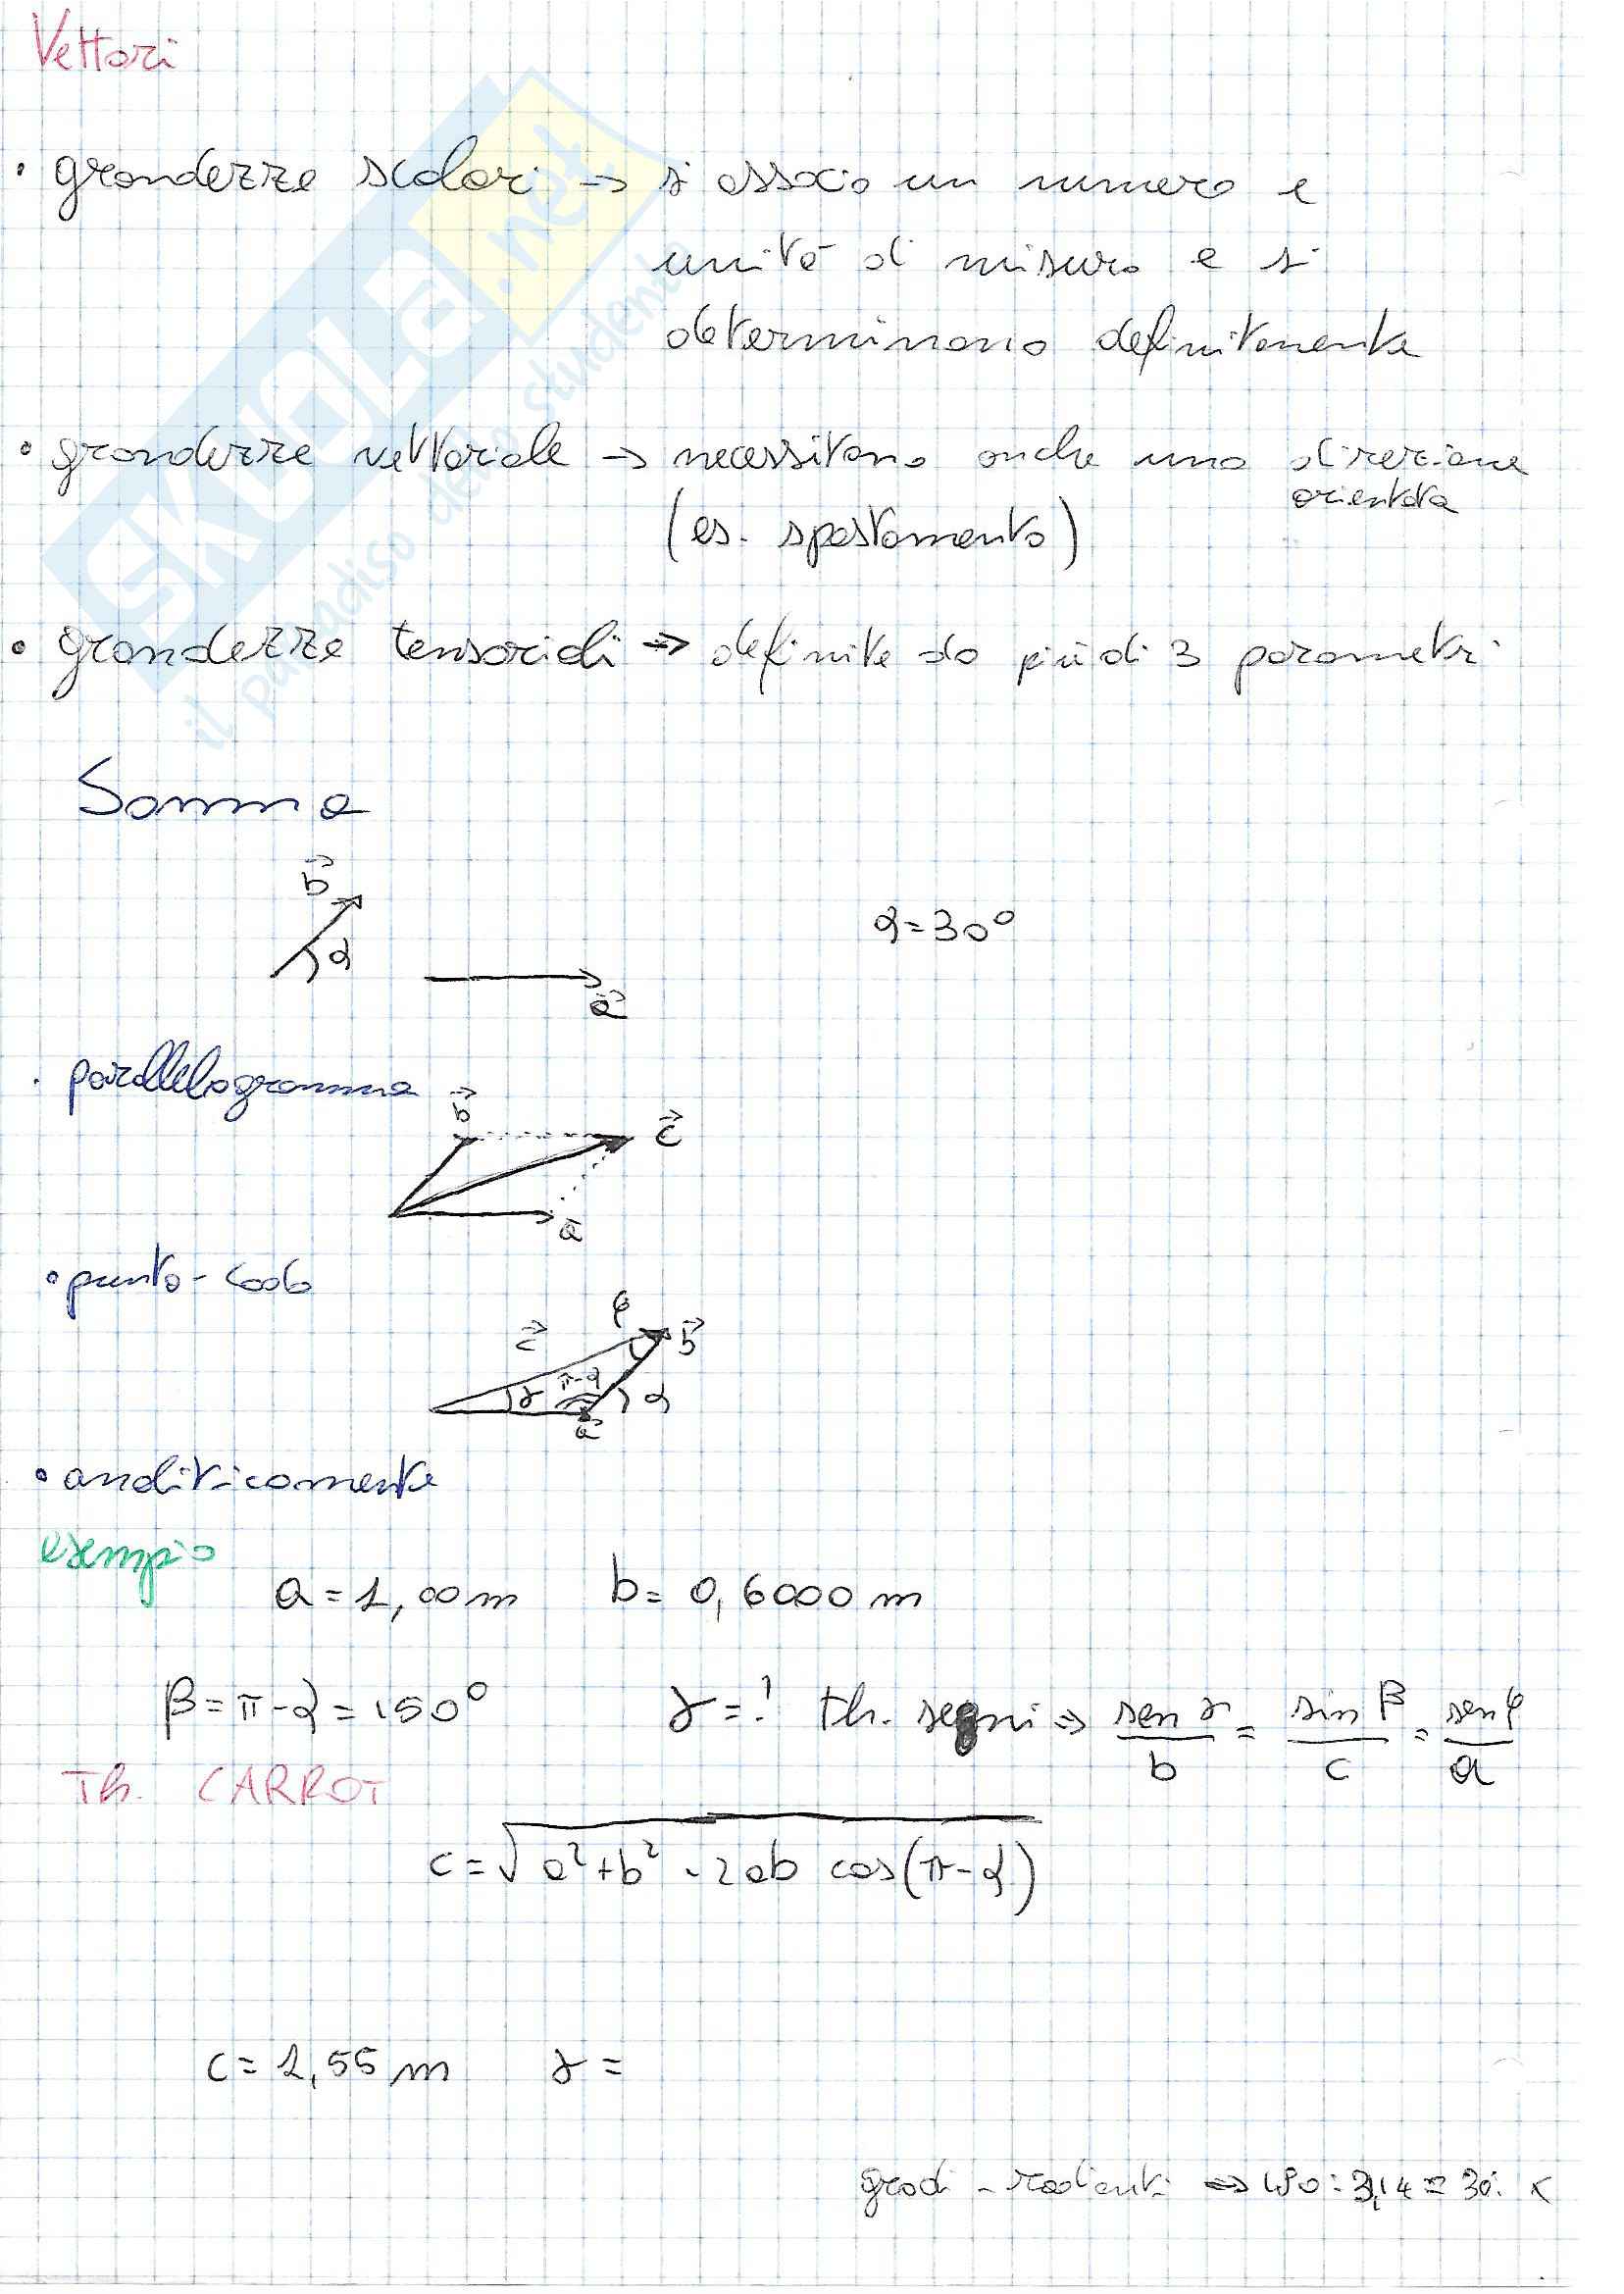 Vettori
• grandezze scalari → si associa un numero e
unità di misura e si
determinano definitamente
• grandezze vettoriale → necessitano anche una direzione
orientata
(es. spostamento)
• grandezze tensoriali → definite da più di 3 parametri
Somma
b⃗
α
a⃗
α=30°
• parallelogramma
b⃗
c⃗
a⃗
• punto-coda
φ
c⃗
b⃗
γ π-α α
a⃗
• analiticamente
esempio
a=1,00m b=0,6000 m
β=π-α=150° γ=! th. segni ⇒ sen γ/b = sin β/c = sen φ/a
Th. CARROT
c=√a²+b²-2ab cos(π-α)
c=1,55m γ=
gradi-radianti ⇒ 180:3,14=30:x
SKUOLA.net
il paradiso dello studente